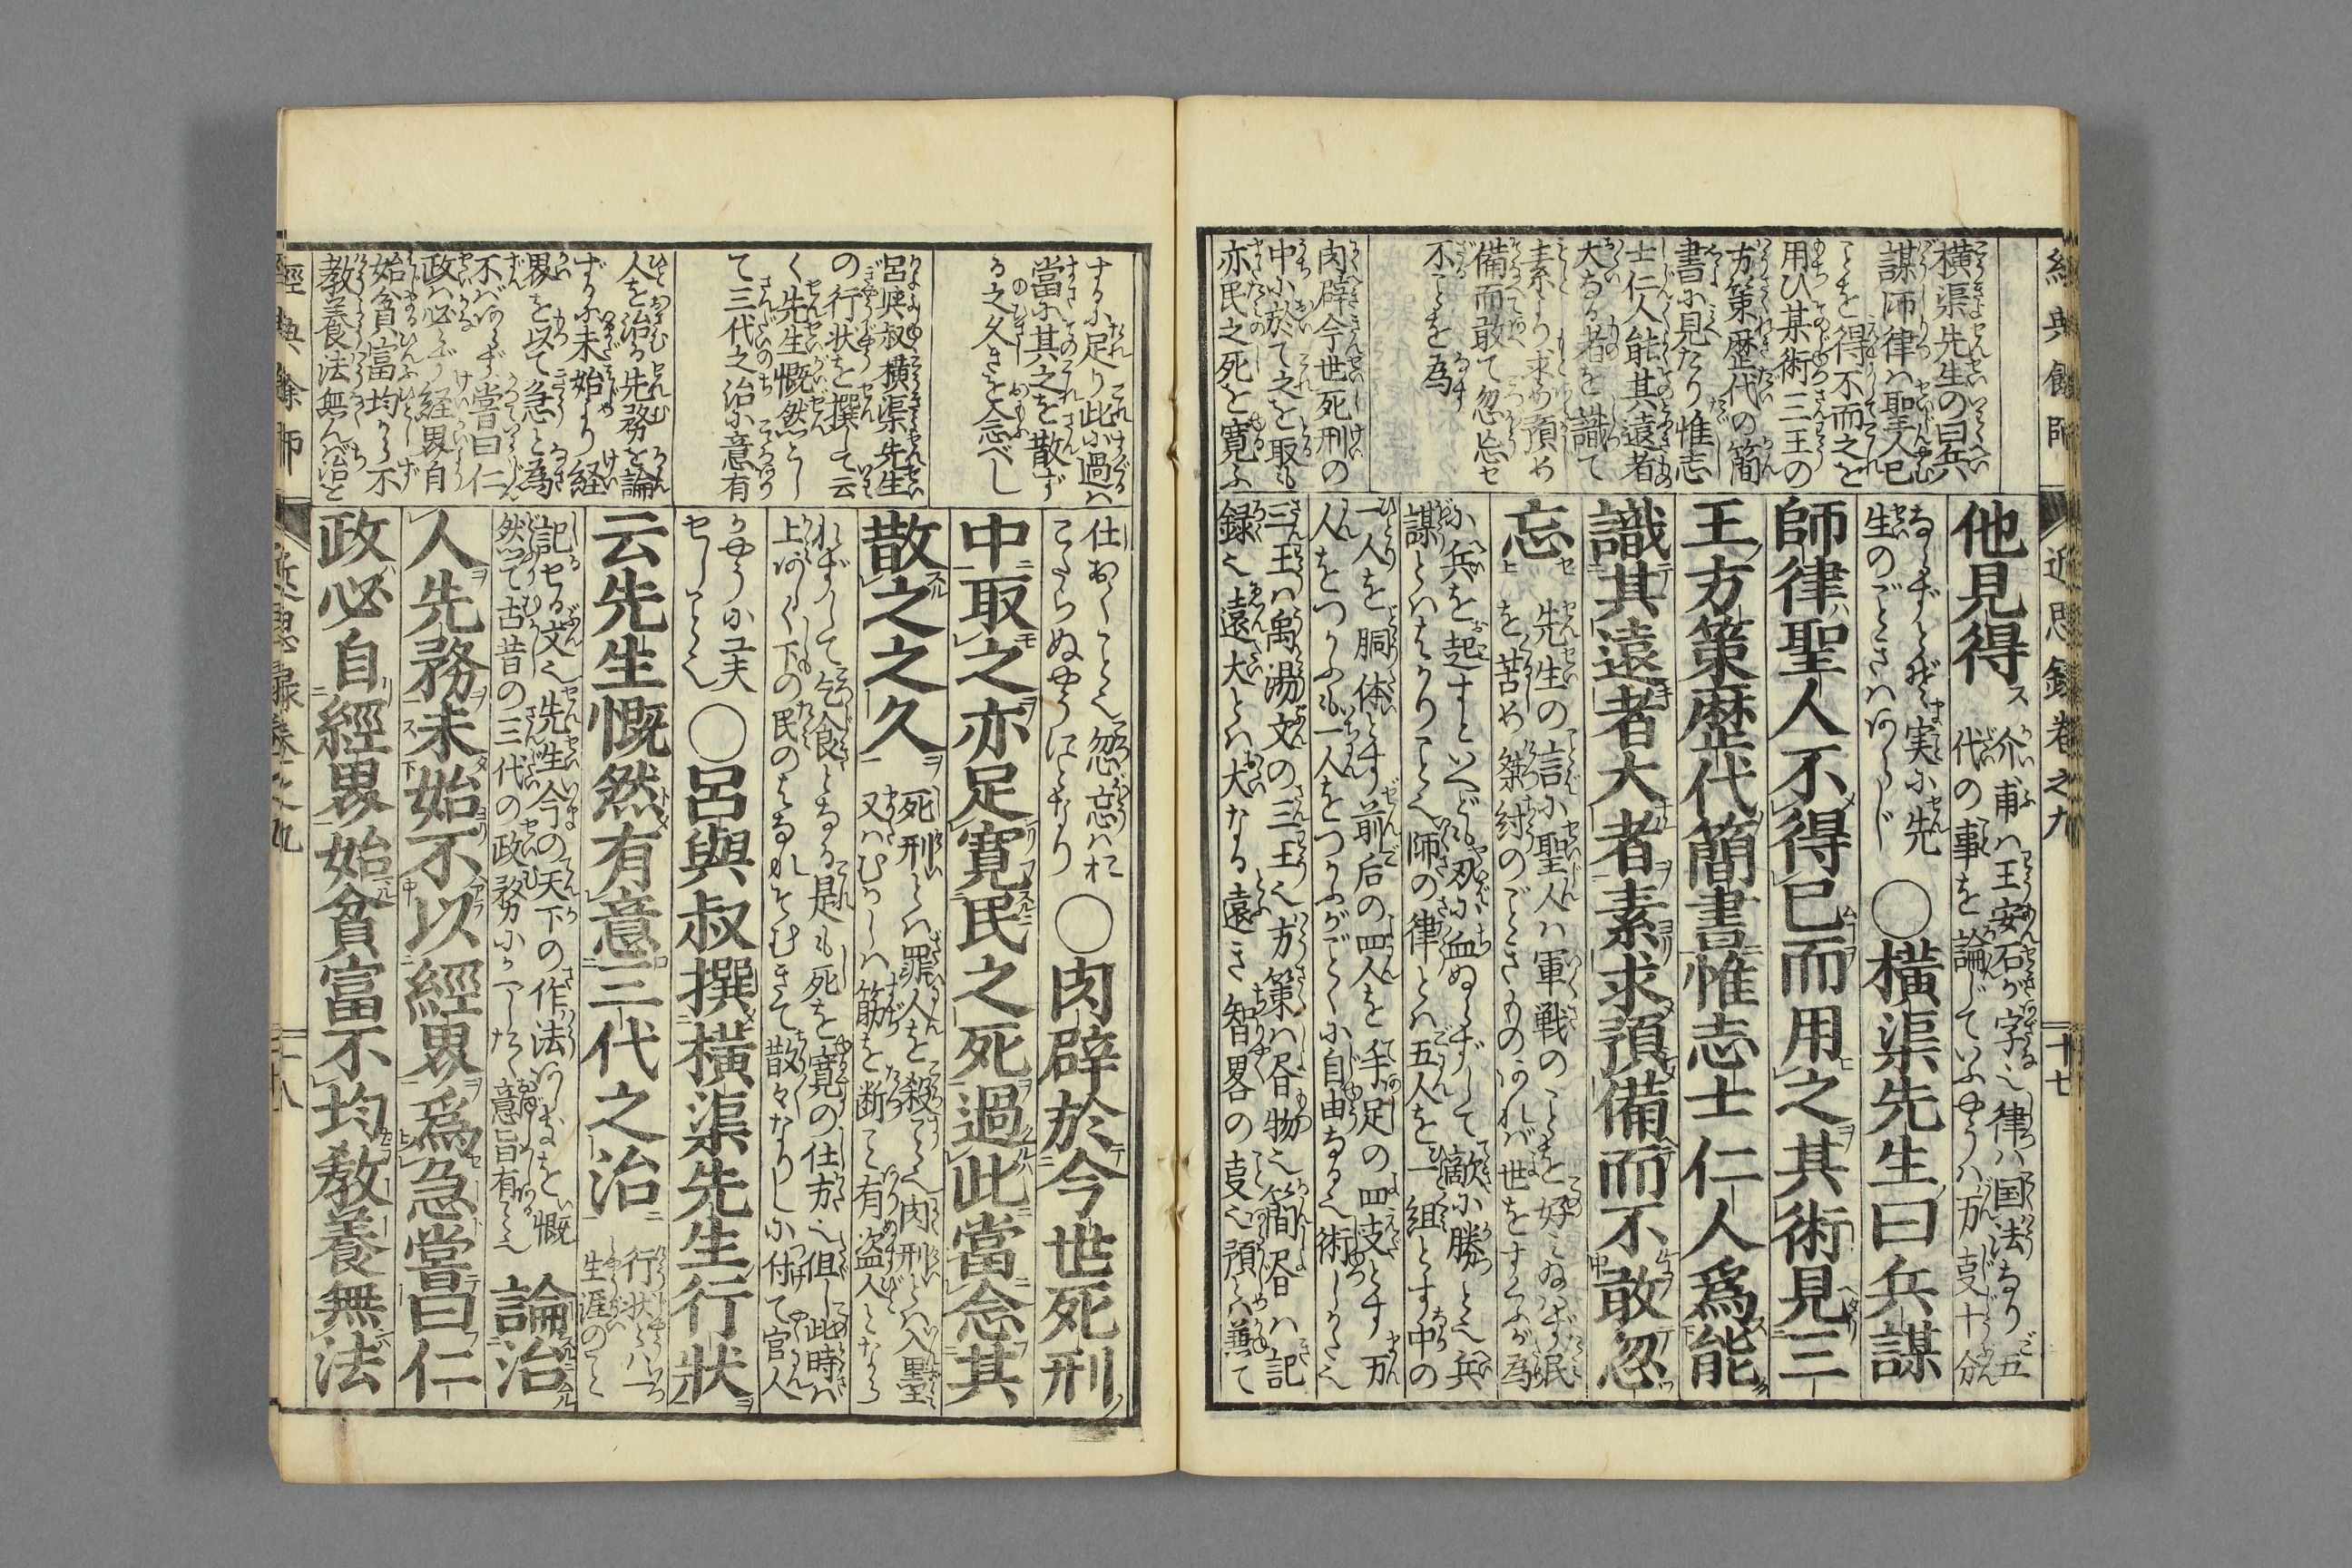 經典餘師
近思録卷之九
十七
横渠先生の曰兵
謀師律ハ聖人已
ことを得不而之を
用ひ其術三王の
方策歴代の簡
書に見たり惟志
士仁人能其遠者
大なる者を識て
素より求め預め
備而敢て忽忘セ
不ことを為
肉辟今世死刑の
中に於て之を取も
亦民之死を寛ふ
他見得ス
介甫ハ王安石が字也律ハ国法なり五
代の事を論じていふやうハ万事十分
ならずといへども実に先
生のごときハあらじ
○横渠先生曰兵謀
師律聖人不得已而用之其術見三
王方策歴代簡書惟志士仁人為能
識其遠者大者素求預備而不敢忽
忘
先生の言に聖人ハ軍戦のことを好ミ給ハず民
を苦め桀紂のごときものあれバ世をすくふが為
に兵を起すといへども刃に血ぬらずして敵に勝こと也兵
謀とハはかりこと也師の律とハ五人を一組とす中の
一人を胴体とす前后の四人を手足の四支とす万
人をつかふも一人をつかふがごとく自由なる也術しかた也
三王ハ禹湯文の三王也方策ハ昏物也簡昏ハ記
録也遠大とハ大なる遠き智畧の事也預ハ兼て
するに足り此に過ハ
當に其之を散ず
る之久きを念べし
呂與叔横渠先生
の行状を撰して云
く先生慨然とし
て三代之治に意有
人を治る先務を論
ずるに未始より経
界を以て急と為
不ばあらず嘗曰仁
政ハ必らず経界自
始貧富均からず
教養法無んバ治を
仕おくこと也忽忘ハお
こたらぬやうにとなり
○肉辟於今世死刑
中取之亦足寛民之死過此當念其
散之之久
死刑とハ罪人を殺こと也肉刑とハ入墨
又ハむかしハ筋を断こと有盗人となら
れずして乞食となる是も死を寛の仕方也但し此時ハ
上あしく下の民のはなれそむきて散々なりしに付て官人
かやうに工夫
せしこと也
○呂與叔撰橫渠先生行狀
云先生慨然有意三代之治
行状とハ一
生涯のこと
記せる文也先生今の天下の作法あしきを慨
然つて古昔の三代の政務にかへしたく意旨有こと也
論治
人先務未始不以經界爲急嘗曰仁
政必自經界始貧富不均敎養無法
經典餘師
近思録卷之九
十八